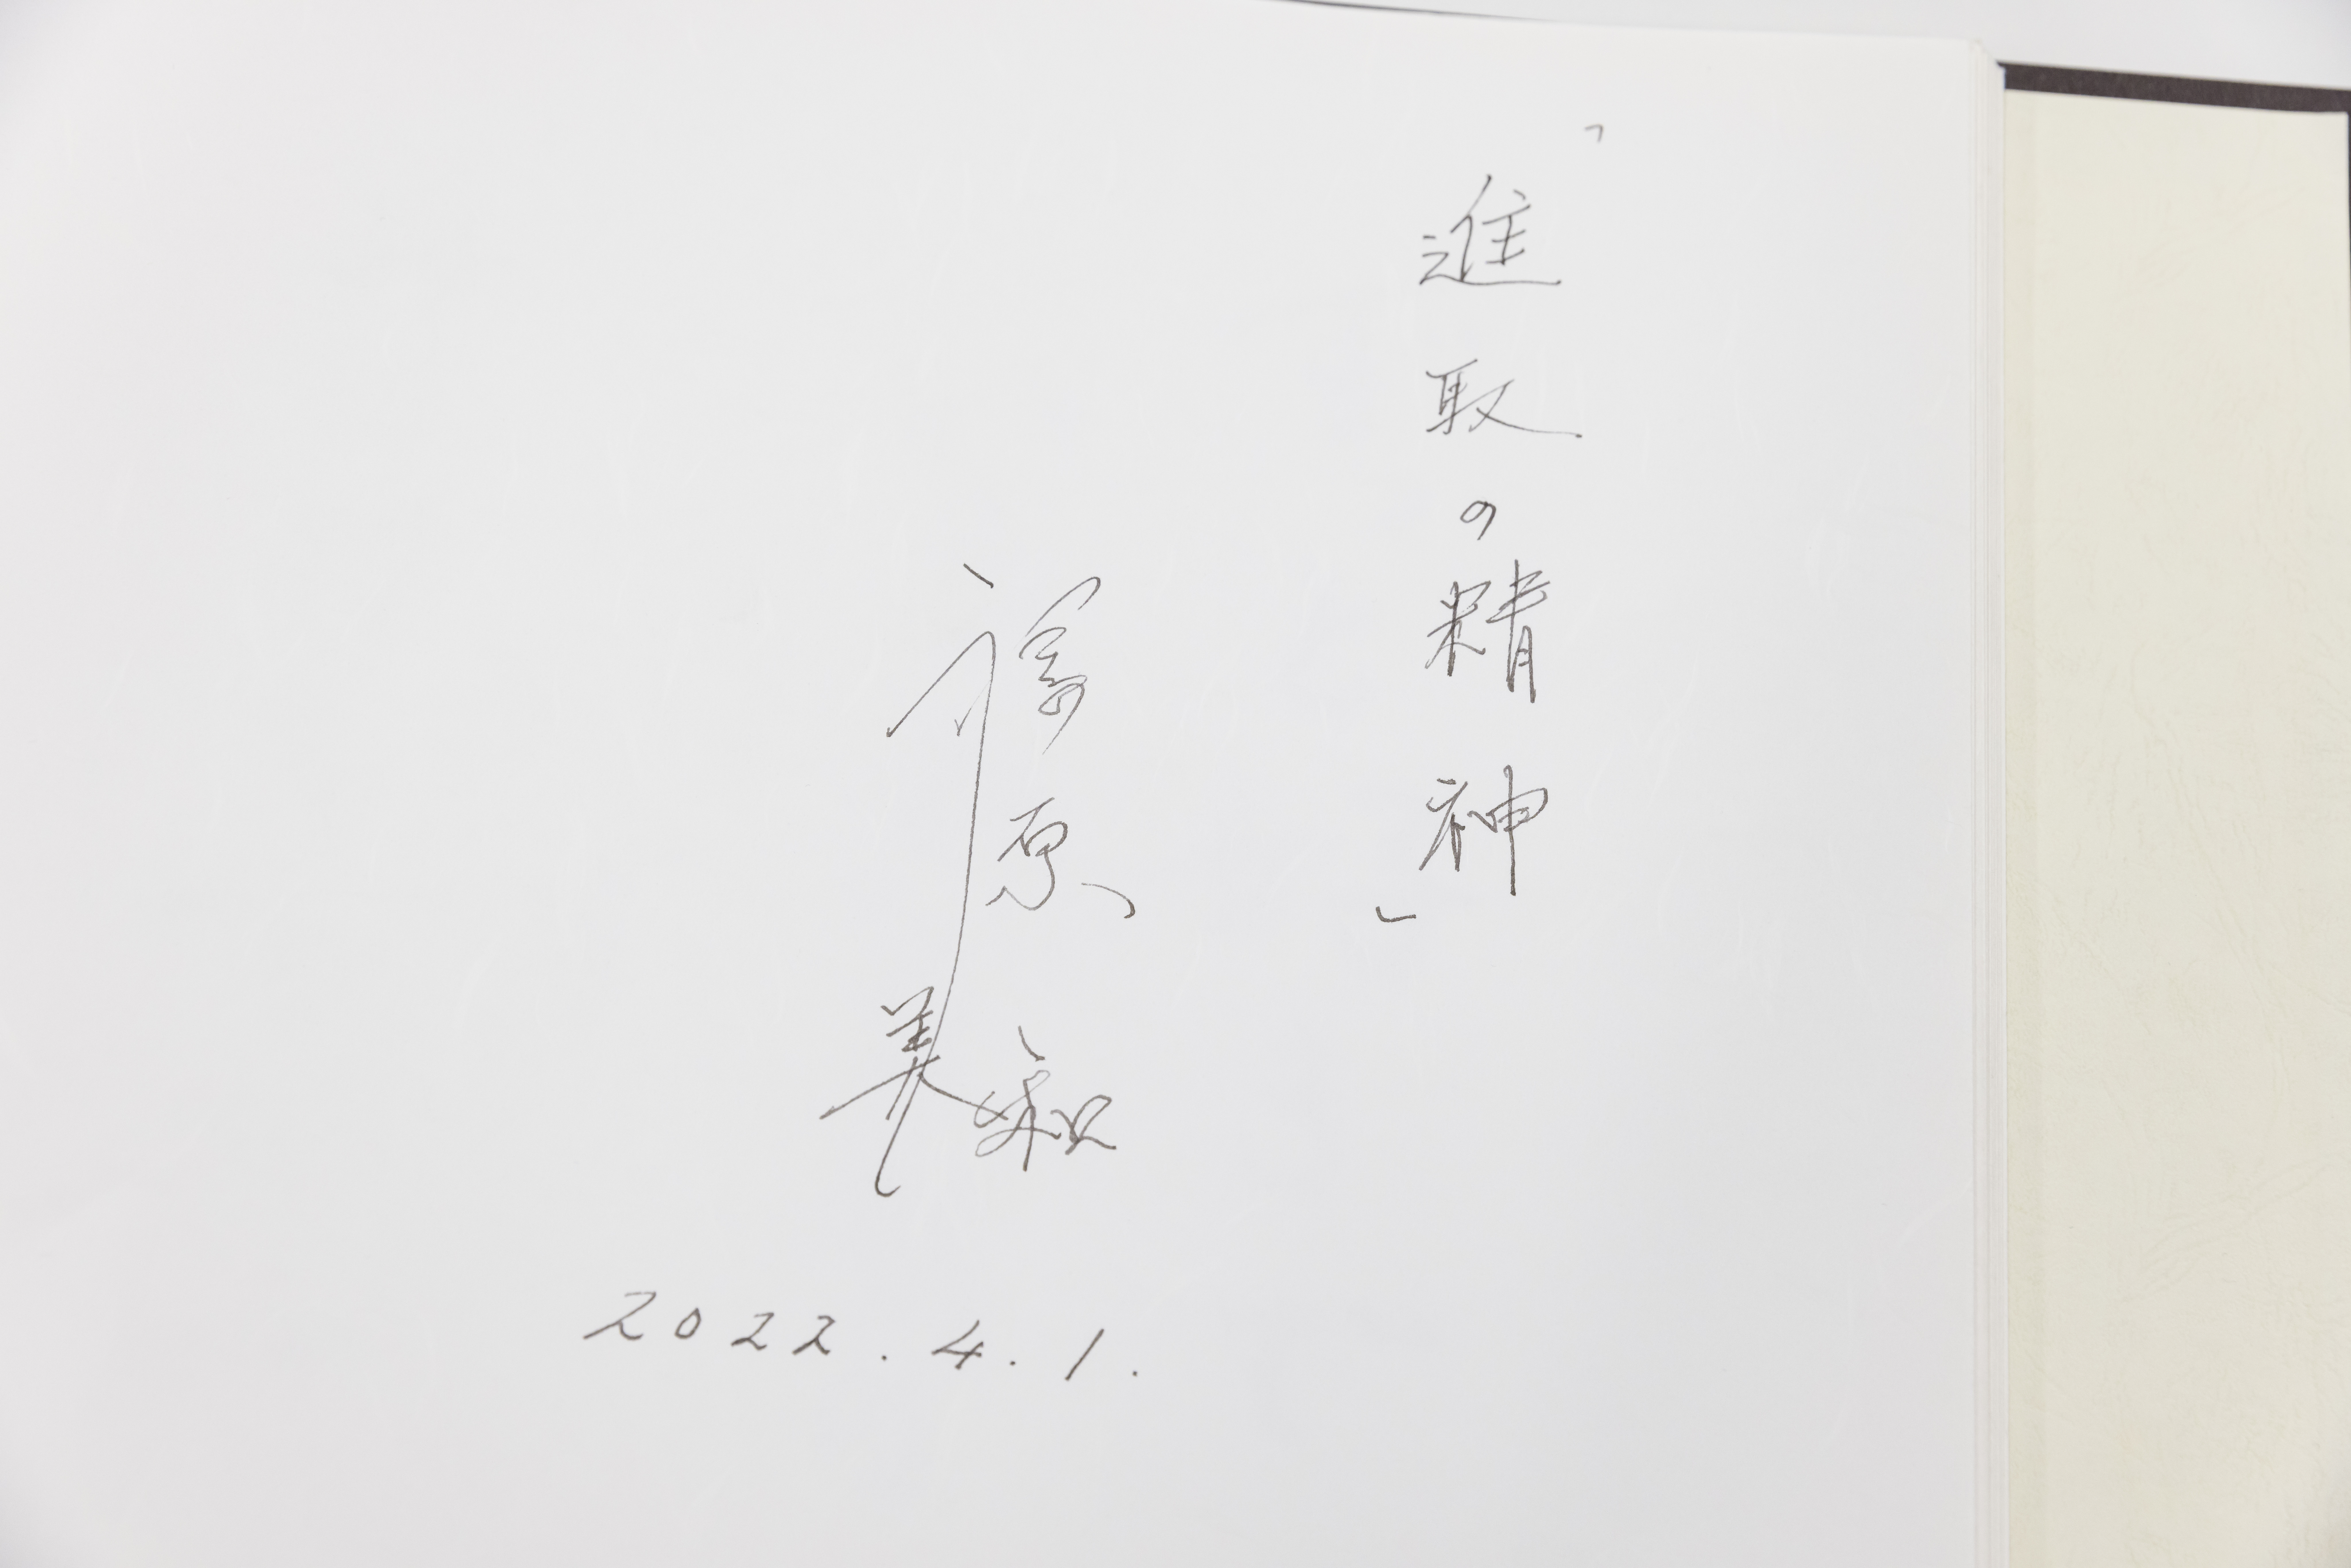 「進取の精神」
福原美和
2022.4.1.